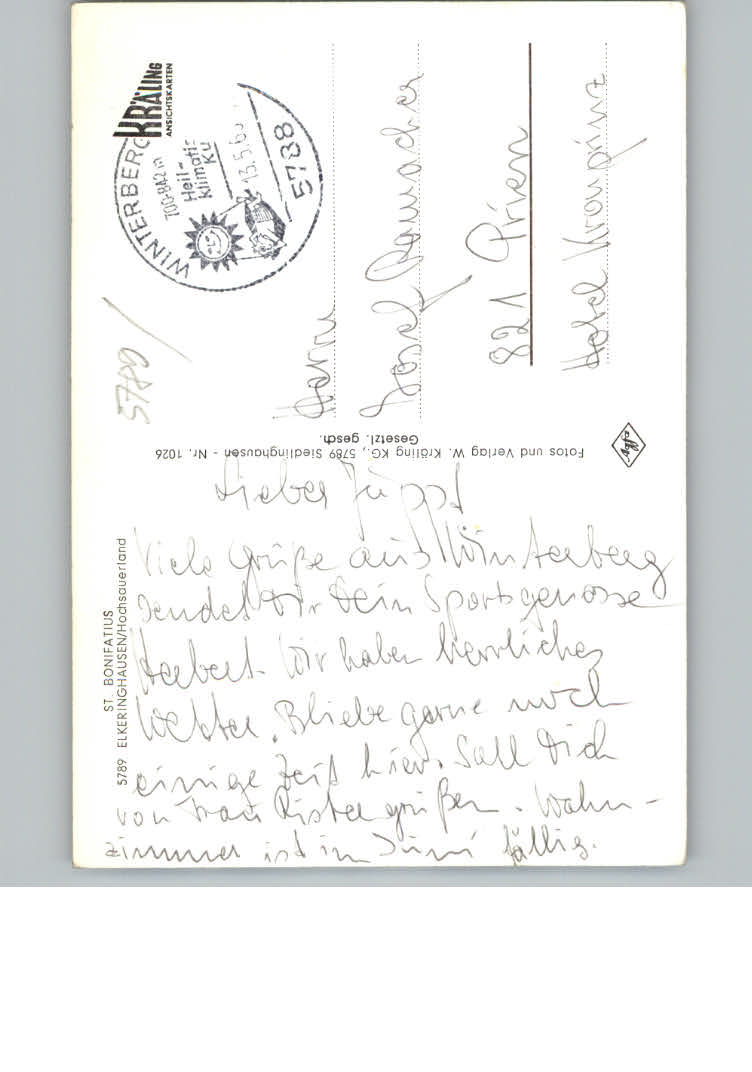 ST. BONIFATIUS
5789 ELKERINGHAUSEN/Hochsauerland
Lieber Jupp!
Viele Grüße aus Winterberg
sendet Dir Dein Sportsgenosse
Herbert. Wir haben herrliches
Wetter. Bliebe gerne noch
einige Zeit hier. Soll Dich
von Frau grüßen. Wohn-
zimmer ist im Juni fällig.
Fotos und Verlag W. Kräling KG., 5789 Siedlinghausen - Nr. 1026
Gesetzl. gesch.
Agfa
5789
KRÄLING
ANSICHTSKARTEN
WINTERBERG
700-842 m
Heil-
klimatis
Ku
13.5.6
5788
Herrn
Josef
821 Prien
Hotel Kronprinz